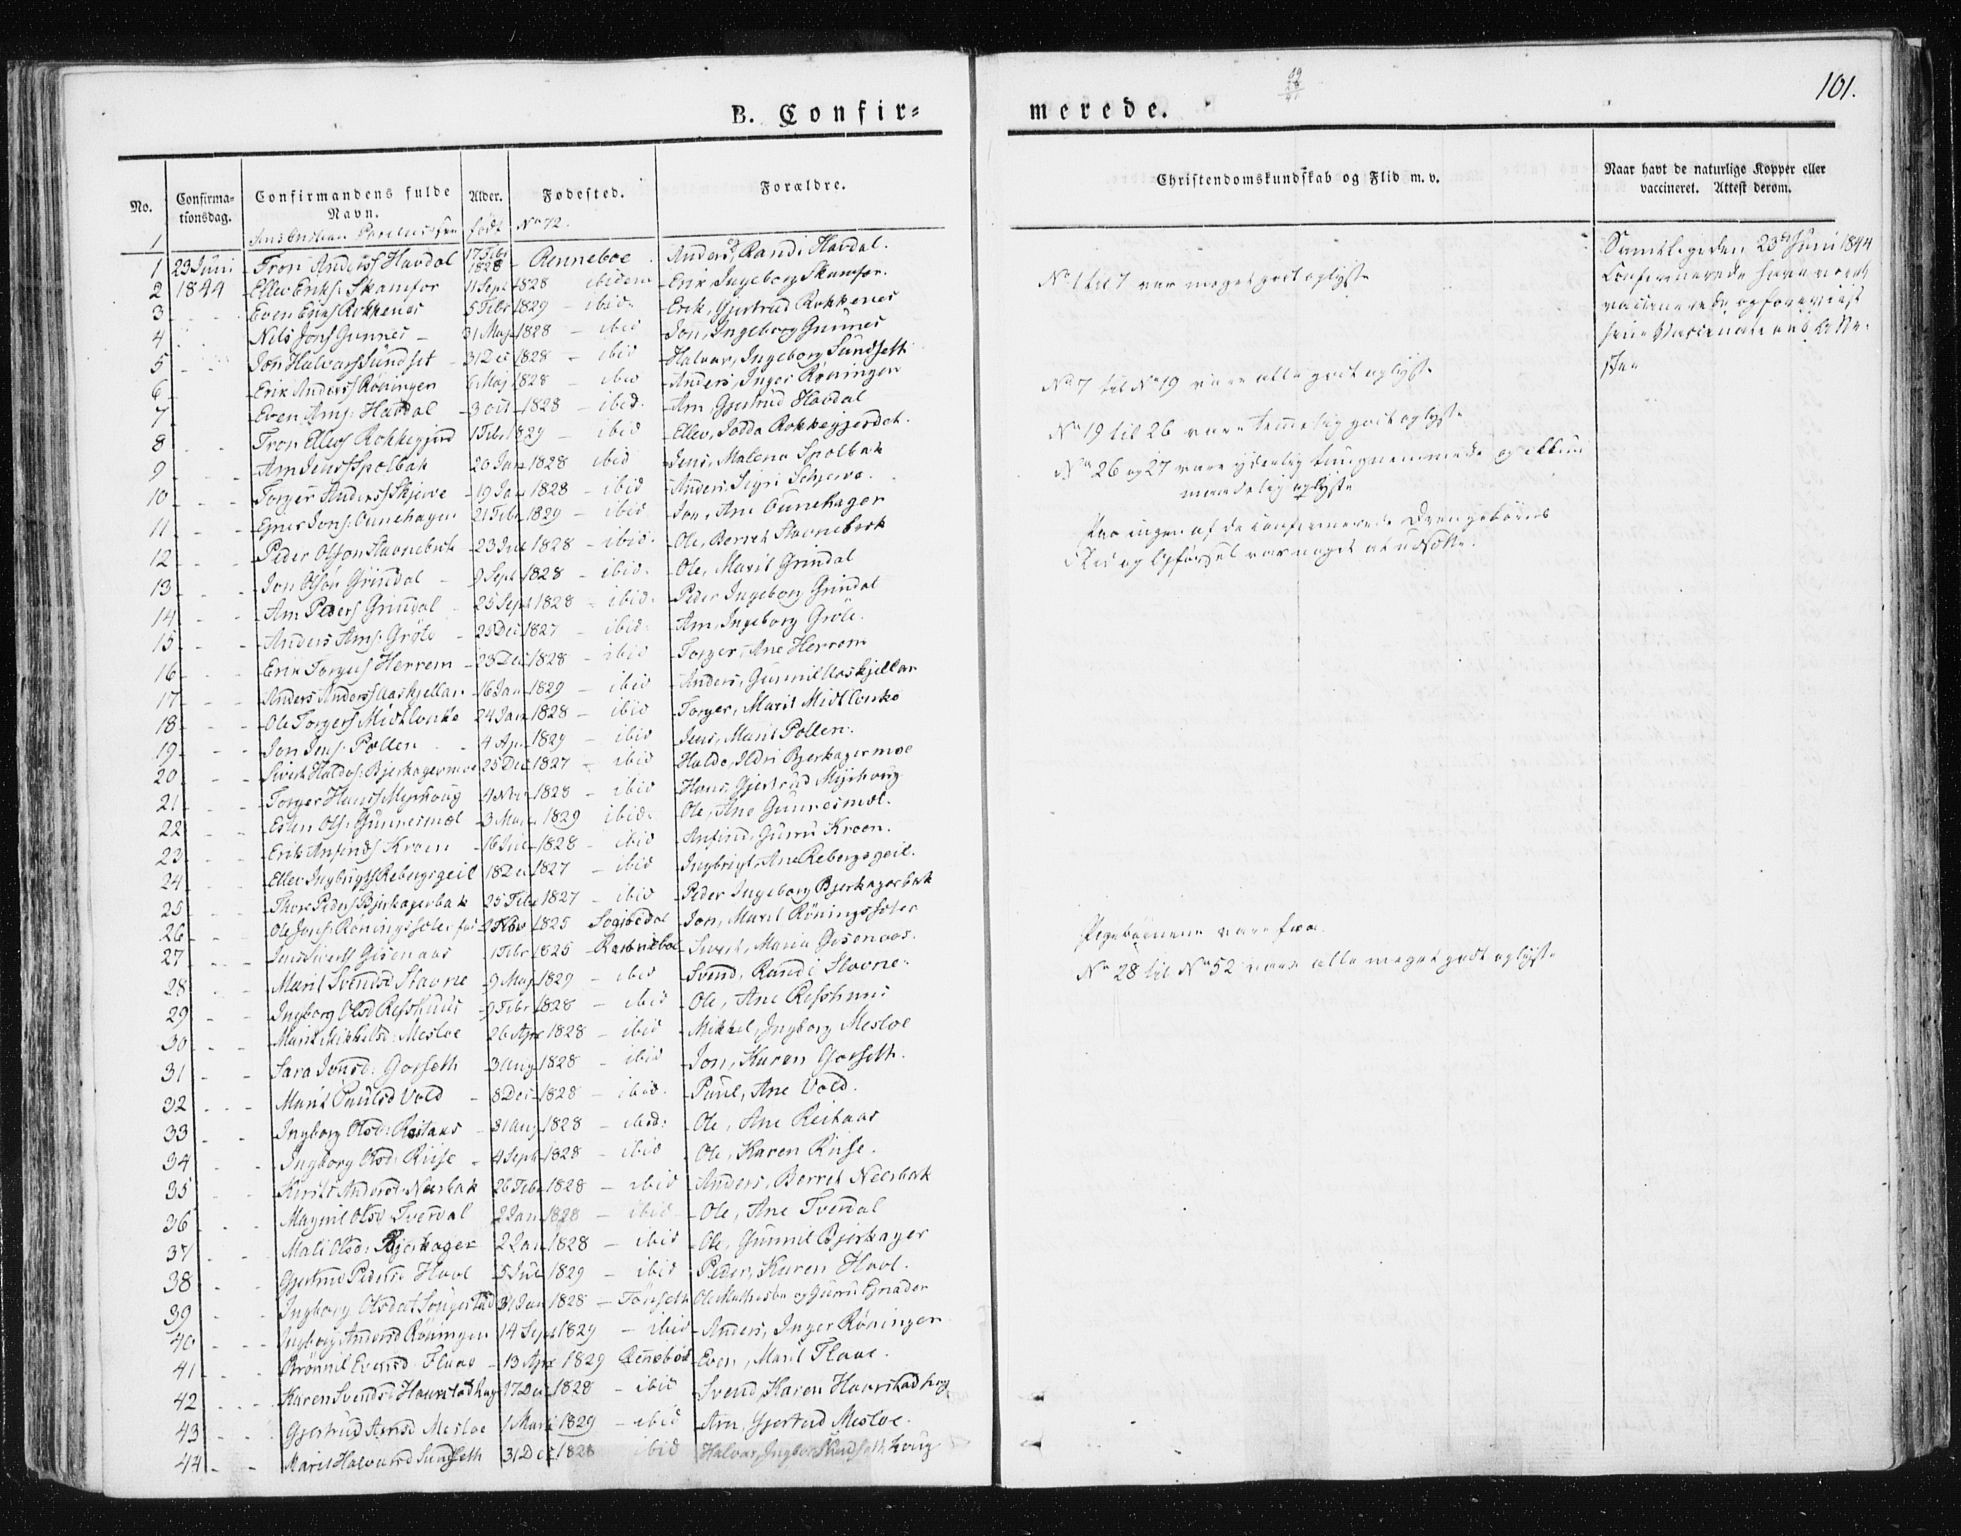 101.
B. Confir-
merede.
No.
Confirma-
tionsdag.
Confirmandens fulde
Navn.
Alder.
Fødested.
Forældre.
Christendomskundskab og Flid m. v.
Naar havt de naturlige Kopper eller
vaccineret. Attest derom.
1 født No 72.
1 23 Juni Tron Anderss Havdal 17 Febr 1828 - Renneboe Anders, Randi Havdal.
2 1844 Ellev Eriks: Skamfer 11 Sept 1828 ibidem Erik Ingeborg Skamfer.
3 - - Even Eriks Rokkenes 5 Febr 1829 - ibid: Erik, Gjertrud Rokkenes
4 - - Nils Jons Gunnes - 31 Maj 1828 - ibid Jon, Ingeborg Gunnes
5 - - Jon Halvars Sundset - 31 Dec 1828 - ibid Halvar, Ingeborg Sundseth
6 - - Erik Anderss Röningen 6 Maj 1828 - ibid Anders, Inger Röningen
7 - - Even Arns: Havdal - 3 Oct 1828 - ibid. Arn, Gjertrud Havdal
8 - - Tron Ellevs Rokkegjerd 1 Febr 1829 - ibid Ellev, Rokkegjerdet.
9 - - Arn Jenss Spolbak 20 Jan 1828 ibid Jens, Malena Spolbak
10 - - Torger Anderss Skjerve - 19 Jan 1828 - ibid Anders, Sigri Schjerve.
11 - - Jons: Cunehagen 21 Febr 1829 - ibid Jon, Ane Cunehagen
12 - - Peder Olson Stavnebrek 23 Jul 1828 - ibid. Ole, Berret Stavnebrek
13 - - Jon Olson Grindal - 9 Sept 1828 - ibid. Ole, Marit Grindal
14 - - Arn Peders Grindal - 25 Sept 1828 - ibid. Peder Ingeborg Grindal
15 - - Anders Arns: Gröte - 25 Dec 1827 - ibid. Arn, Ingeborg Gröte.
16 - - Erik Torgers Herrem - 23 Dec 1828 - ibid Torger, Ane Herrem
17 - - Anders Anderss Aaskjellan - 16 Jan 1829 - ibid Anders, Gunnil Aaskjellan
18 - - Ole Torgers Midtlonke 24 Jan 1828 - ibid Torger, Marit Midtlonko
19 - - Jon Jens: Pollen - 4 Apr 1829 - ibid Jens, Marit Pollen.
20 - - Sivert Haldos: Bjerkagermoe 25 Dec 1827 - ibid Haldo, Ildri Bjerkagermoe
21 - - Torger Hanss Myrhoug 4 Nov 1828 - ibid Hans, Gjertrud Myrhoug
22 - - Esten Ols: Gunnesmæl - 3 Mar 1829 - ibid. Ole, Ane Gunnesmæl.
23 - - Erik Anfinds Kroen - 16 Jul 1828 - ibid Anfind, Gurru Kroen.
24 - - Ellev Ingbrigts Rebergsgeil 18 Dec 1827 - ibid Ingbrigt, Ane Rebergsgeil.
25 - - Thore Peders Bjerkagerbak 25 Febr 1827 - ibid Peder Ingeborg Bjerkagerbak
26 - - Ole Jons: Röningssæter 1825 Jon, Marit Röningssæter
27 - - Jens Siverts Gisenaas 1 Febr 1825 Renneboe Sivert, Maria Gisenaas.
28 - - Marit Svendsd Stavne - 9 Maj 1829 - ibid Svend, Randi Stavne.
29 - - Ingborg Olsd Refshuus - 9 Febr 1828 - ibid Ole, Ane Refshuus
30 - - Marit Mikkelsd: Mesloe 26 Apr 1828 - ibid Mikkel, Ingborg Mesloe
31 - - Sara Jonsd: Gorseth 3 Aug 1828 - ibid Jon, Karen Gorseth.
32 - - Marit Paulsd Vold - 8 Dec 1828 - ibid. Paul, Ane Vold.
33 - - Ingborg Olsd: Reitaas - 31 Aug 1828 - ibid: Ole, Ane Reitaas
34 - - Ingborg Olsd: Riise - 4 Sept 1828 - ibid Ole, Karen Riise.
35 - - Kirsti Andersd: Neesbak 26 Febr 1828 - ibid Anders, Berret Neesbak
36 - - Magnil Olsd Tverdal 2 Jan 1828 - ibid Ole, Ane Tverdal
37 - - Mali Olsd: Bjerkager 2 Jan 1828 - ibid Ole, Gunnil Bjerkager
38 - - Gjertrud Pedersd Hool 5 Jul 1829 - ibid Peder, Karen Hool.
39 - - Ingborg Olsdat 31 Jan 1828 - Tönseth Ole og Gurru
40 - - Ingborg Andersd Röningen 14 Sept 1829 - ibid Anders, Inger Röningen
41 - - Evensd: Flaae - 13 Apr 1829 Rennebo Even, Marit Flaae.
42 - - Karen Svendsd Haurstadhag 17 Dec 1828 - ibid Svend, Karen Haurstadhag
43 - - Gjertrud Arnsd Mesloe 1 Marts 1829 - ibid Arn, Gjertrud Mesloe.
44 - - Marit Halvarsd Sundseth 31 Dec 1828 ibid Halvar, Ingebor Sundseth
No 1 til 7 var meget godt oplyste
No 7 til No 19 vare alle godt oplyste
No 19 til 26 vare temelig godt oplyste
No 26 og 27 vare yderlig tungnemmede og ikkun
maadelig oplyste
Paa ingen af de confirmerede Drengebørns
Flid og Opførsel var noget at udsætte.
Pigebørnene vare fra
No 28 til No 52 vare alle meget godt oplyste
Samtlige den 23de Juni 1844
Confirmerede have været
vaccinerede og foreviist
sine Vaccinations Atte-
ster